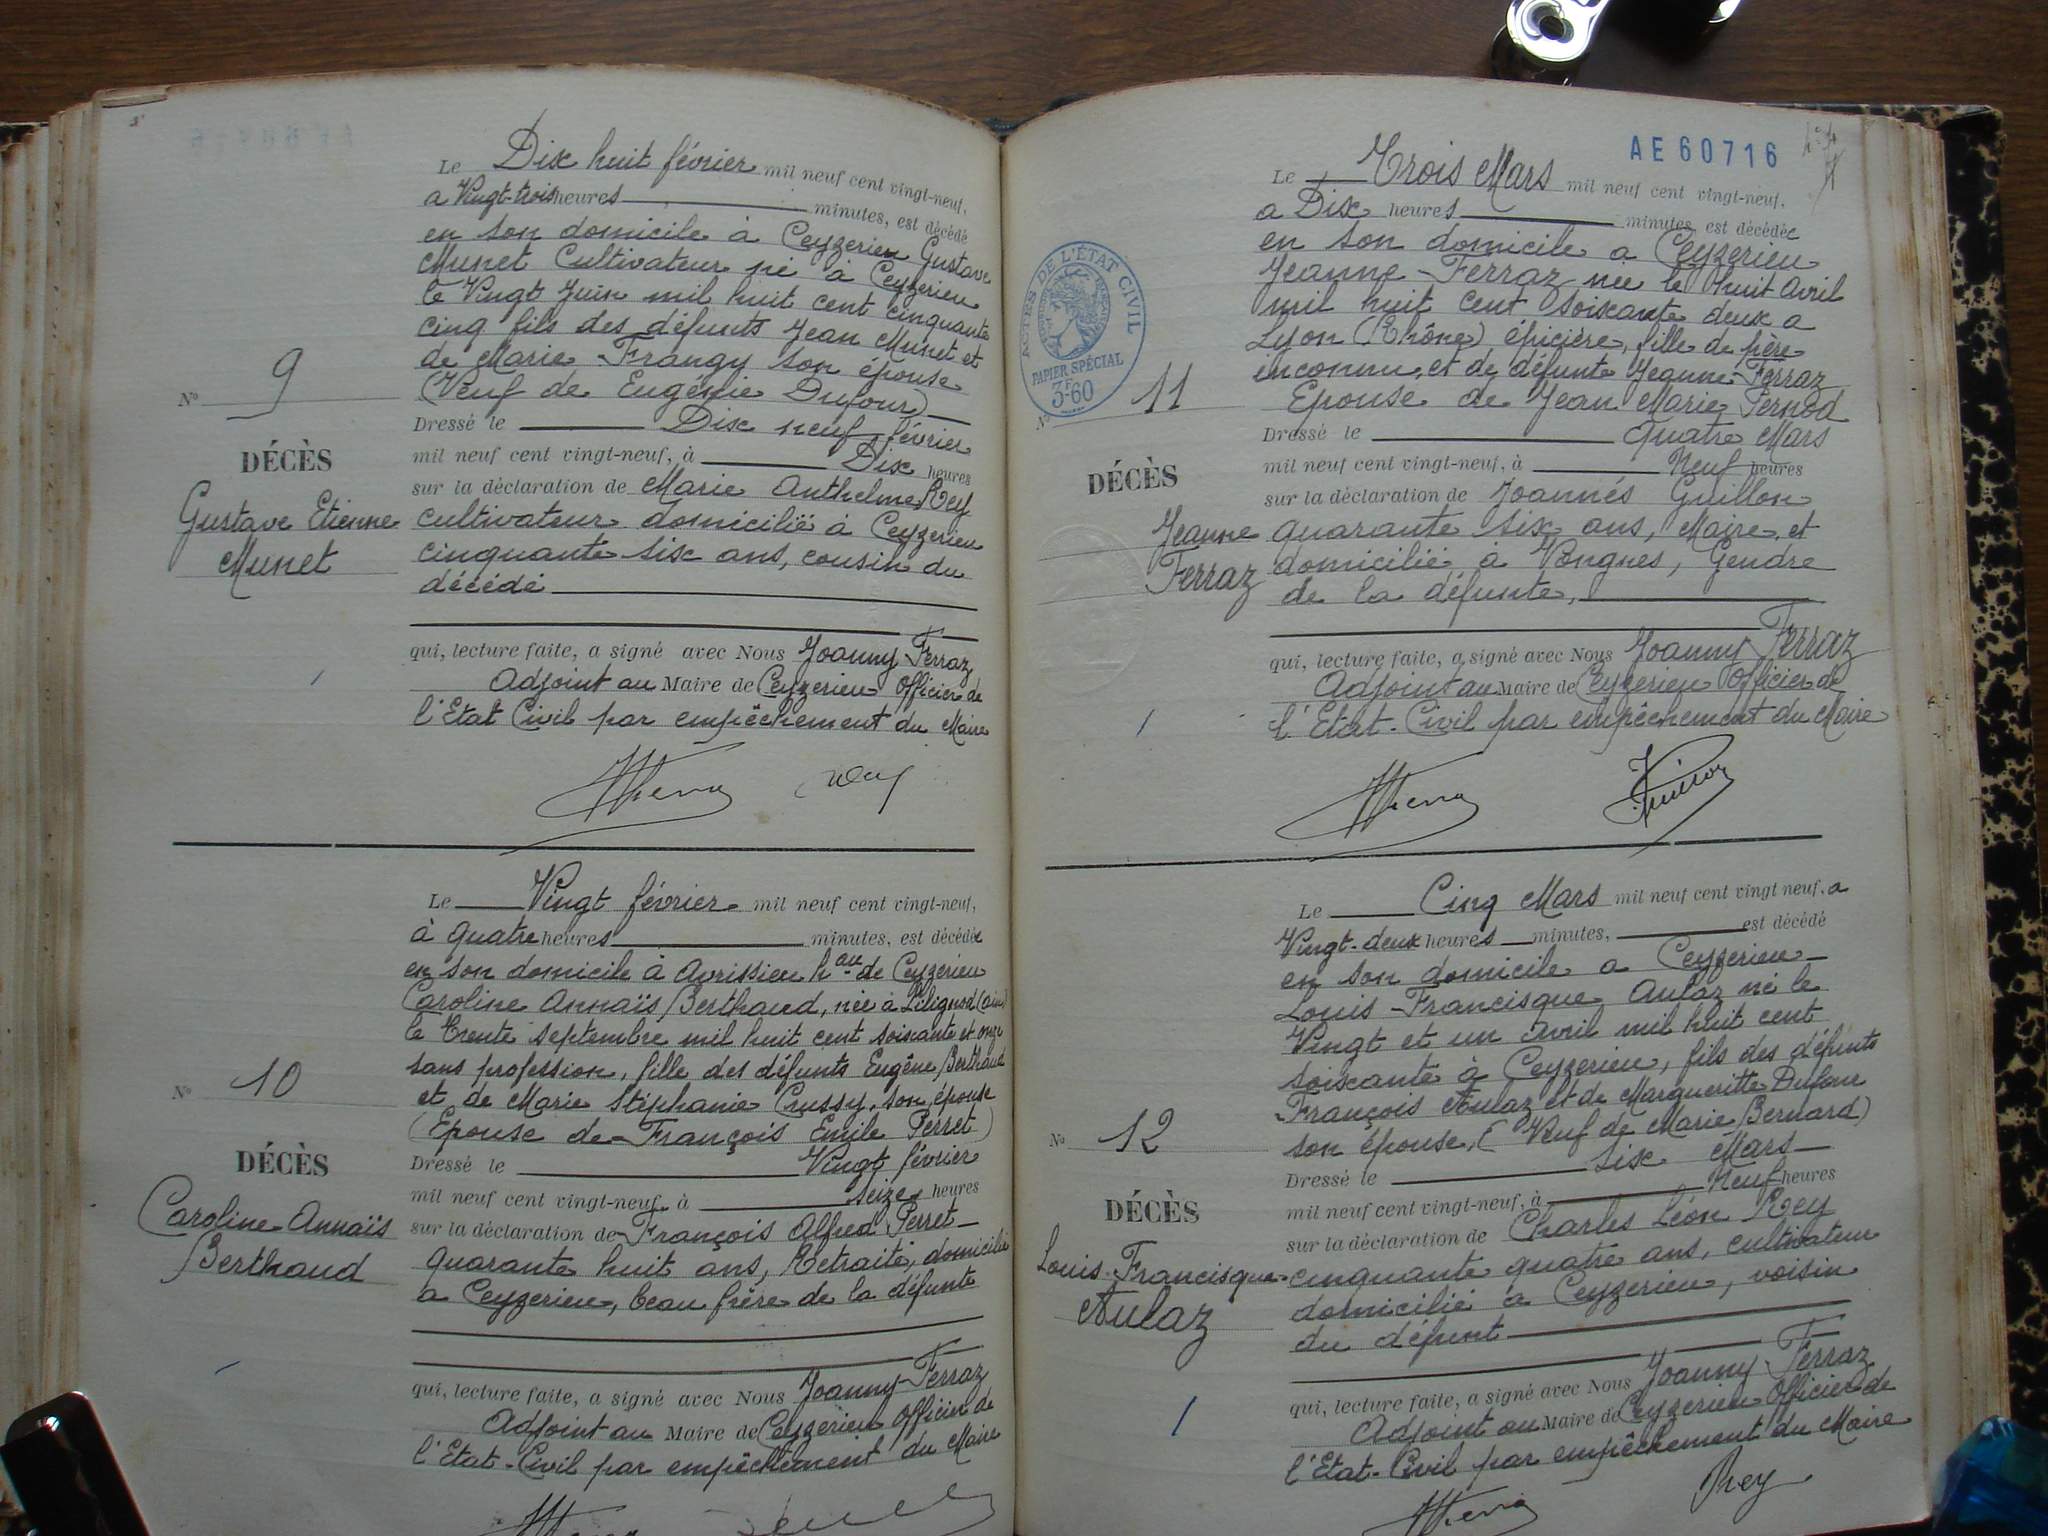 Le Dix huit février mil neuf cent vingt-neuf,
a Vingt-trois heures minutes, est décédé
en son domicile à Ceyzerieu Gustave
Munet Cultivateur né à Ceyzerieu
le Vingt Juin mil huit cent cinquante
cinq fils des défunts Jean Munet et
de Marie Frangy son épouse
(Veuf de Eugénie Dufour)
N° 9
DÉCÈS
Gustave Etienne
Munet
Dressé le Dix neuf février
mil neuf cent vingt-neuf, à Dix heures
sur la déclaration de Marie Anthelme Rey
cultivateur domicilié à Ceyzerieu
cinquante six ans, cousin du
décédé
qui, lecture faite, a signé avec Nous Joanny Ferraz
Adjoint au Maire de Ceyzerieu Officier de
l'Etat Civil par empêchement du Maire
Rey
Le Vingt février mil neuf cent vingt-neuf,
à quatre heures minutes, est décédée
en son domicile à Avrissieu h.au de Ceyzerieu
Caroline Annaïs Berthaud, née à Lilignod (ain)
le trente septembre mil huit cent soixante et onze
sans profession, fille des défunts Eugène Berthaud
et de Marie Stéphanie Crussy, son épouse
(Epouse de François Emile Perret)
N° 10
DÉCÈS
Caroline Annaïs
Berthaud
Dressé le Vingt février
mil neuf cent vingt-neuf, à seize heures
sur la déclaration de François Alfred Perret
quarante huit ans, Retraité, domicilié
a Ceyzerieu, beau frère de la défunte
qui, lecture faite, a signé avec Nous Joanny Ferraz
Adjoint au Maire de Ceyzerieu Officier de
l'Etat-Civil par empêchement du Maire
AE 60716
Le Trois Mars mil neuf cent vingt-neuf,
a Dix heures minutes, est décédée
en son domicile a Ceyzerieu
Jeanne Ferraz née le huit Avril
mil huit cent soixante deux a
Lyon (Rhône) épicière, fille de père
inconnu, et de défunte Jeanne Ferraz
Epouse de Jean Marie Pernod
ACTES DE L'ÉTAT CIVIL
PAPIER SPÉCIAL
3F60
N° 11
DÉCÈS
Jeanne
Ferraz
Dressé le quatre Mars
mil neuf cent vingt-neuf, à Neuf heures
sur la déclaration de Joannés Guillon
quarante six ans, Maire, et
domicilié à Vongnes, Gendre
de la défunte,
qui, lecture faite, a signé avec Nous Joanny Ferraz
Adjoint au Maire de Ceyzerieu Officier de
l'Etat-Civil par empêchement du Maire
Le Cinq Mars mil neuf cent vingt neuf, a
Vingt-deux heures minutes, est décédé
en son domicile a Ceyzerieu
Louis Francisque Aulaz né le
Vingt et un avril mil huit cent
soixante à Ceyzerieu, fils des défunts
François Aulaz et de Margueritte Dufour
son épouse, (Veuf de Marie Bernard)
N° 12
DÉCÈS
Louis-Francisque
Aulaz
Dressé le six Mars
mil neuf cent vingt-neuf, à Neuf heures
sur la déclaration de Charles Léon Rey
cinquante quatre ans, cultivateur
domicilié a Ceyzerieu, voisin
du défunt
qui, lecture faite, a signé avec Nous Joanny Ferraz
Adjoint au Maire de Ceyzerieu Officier de
l'Etat-Civil par empêchement du Maire
Rey